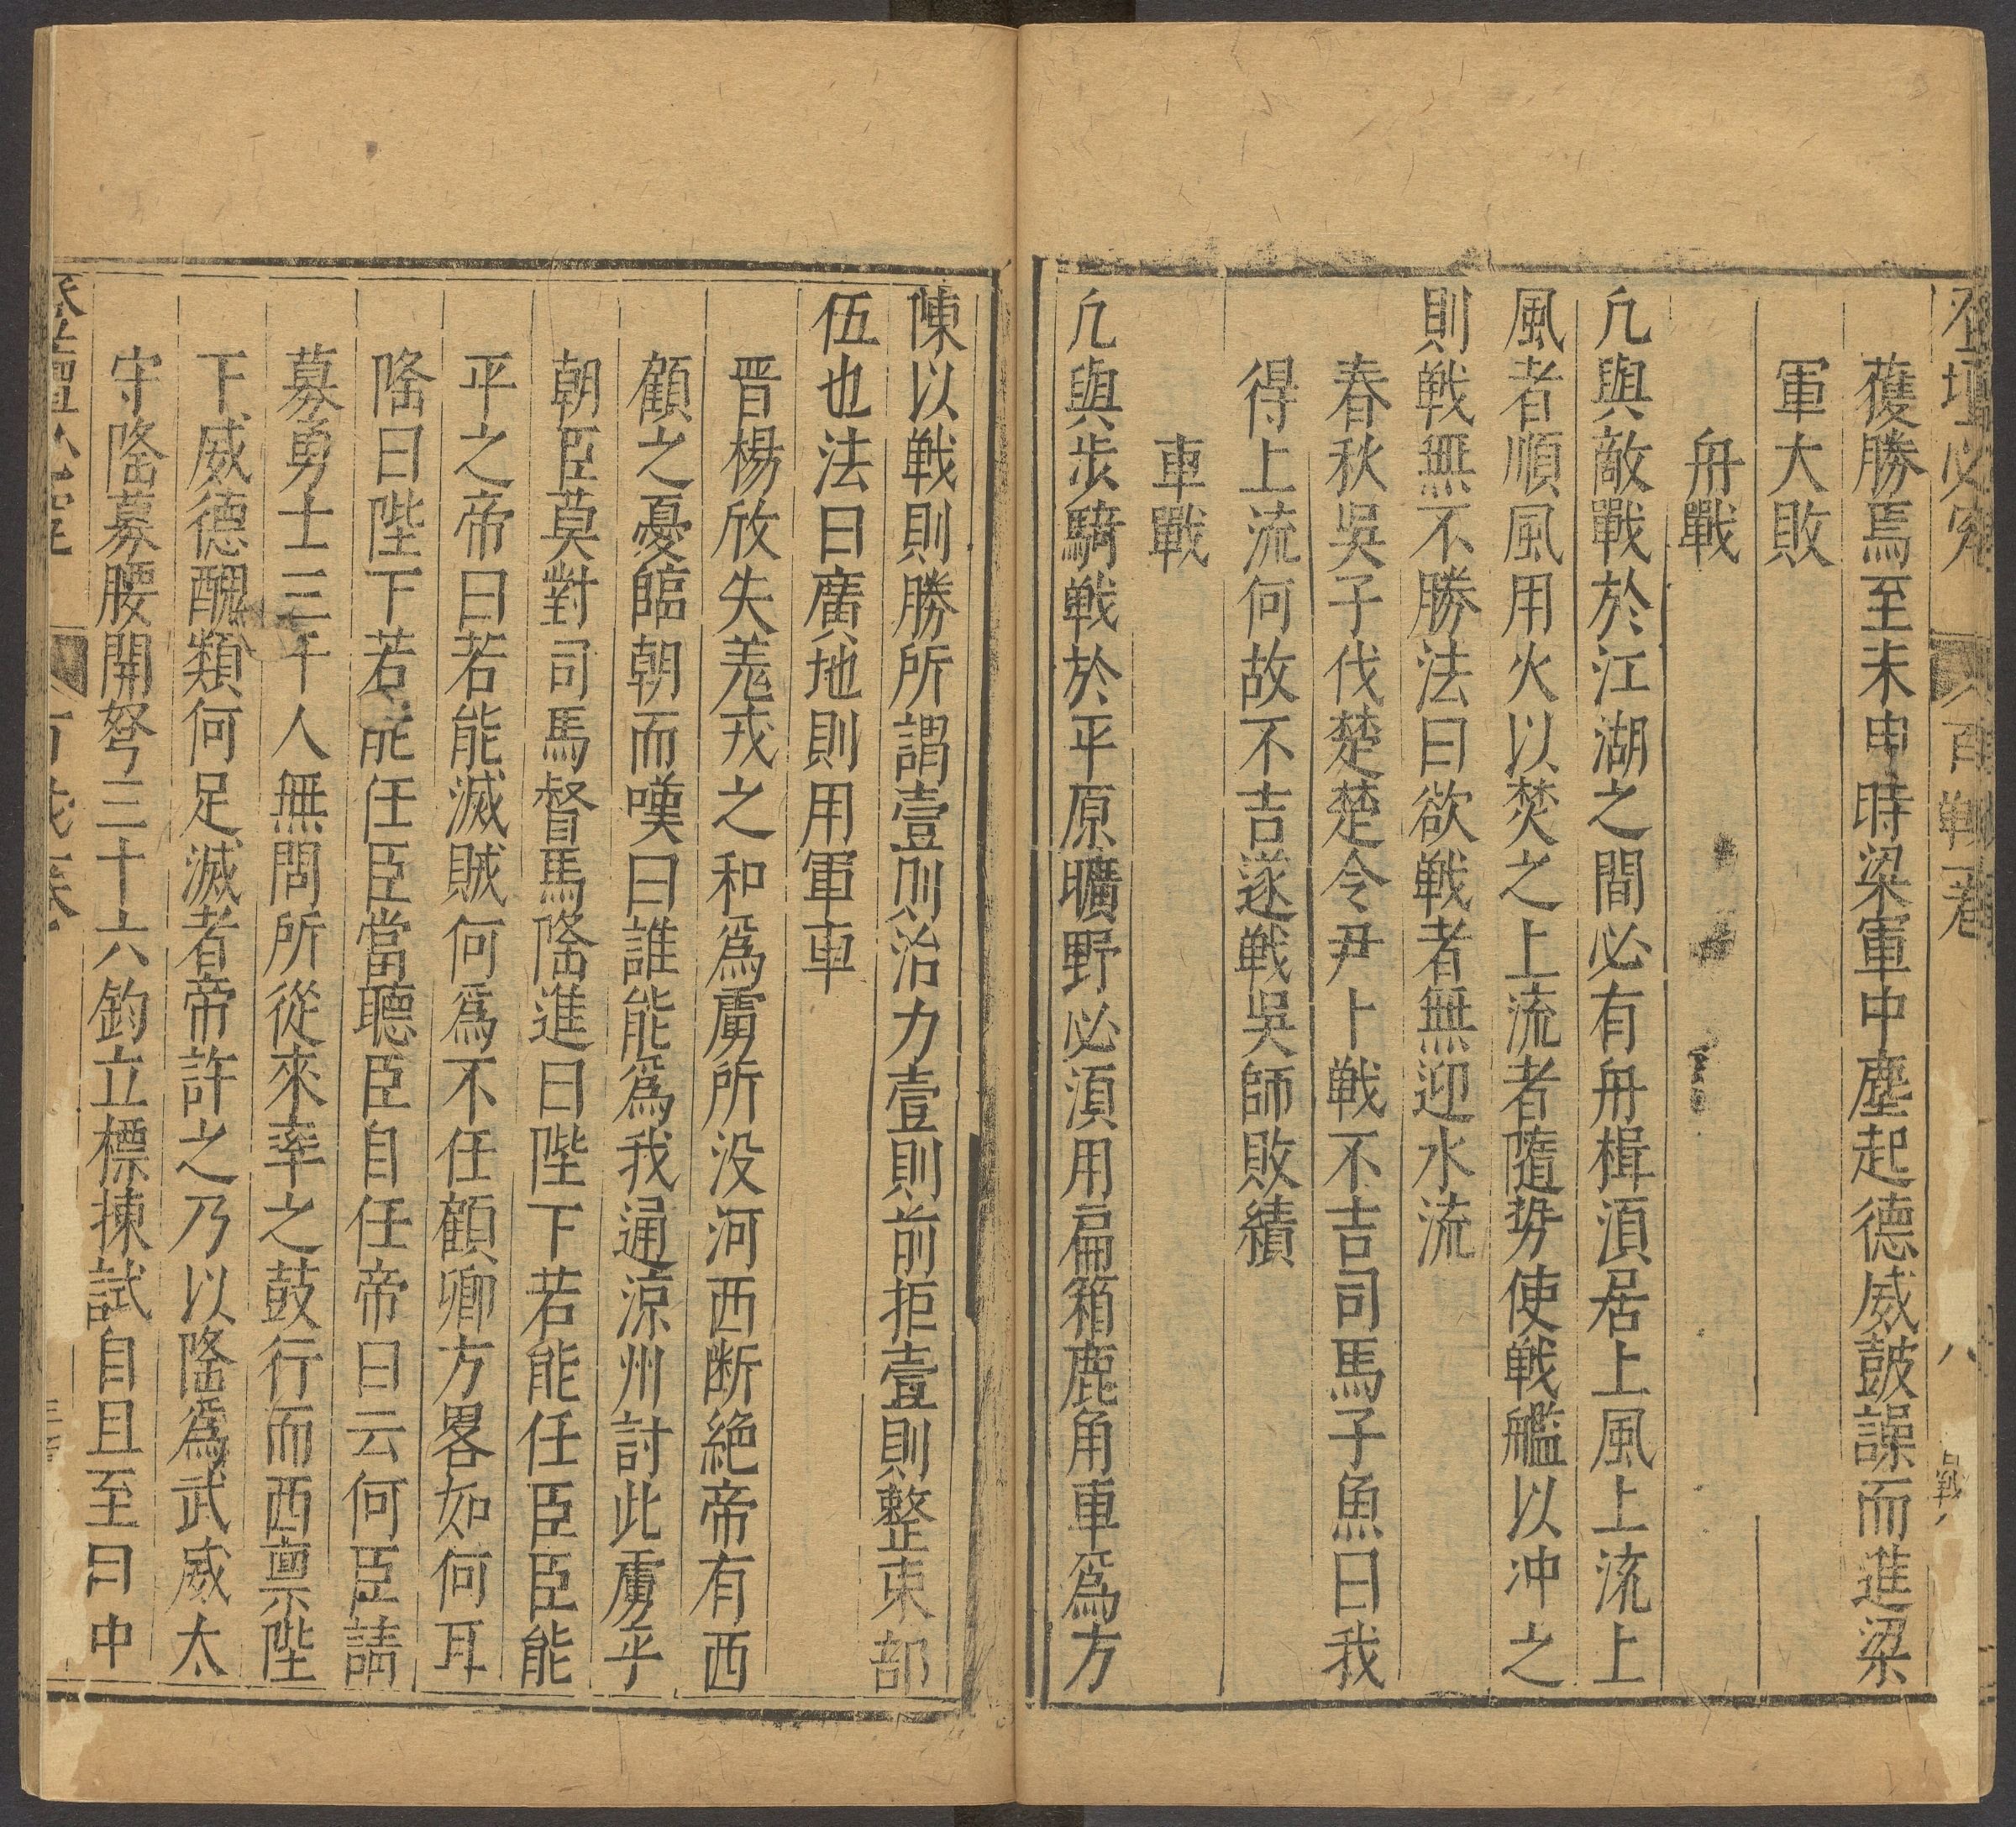 登壇必究 百戰一卷 八
獲勝焉至未申時梁軍中塵起德威鼓譟而進梁
軍大敗
舟戰
凢與敵戰於江湖之間必有舟楫湏居上風上流上
風者順風用火以焚之上流者隨势使戦艦以冲之
則戦無不勝法曰欲戦者無迎水流
春秋吳子伐楚楚令尹卜戦不吉司馬子魚曰我
得上流何故不吉遂戦吳師敗績
車戰
凢與步騎戦於平原曠野必湏用扁箱鹿角車爲方
陳以戦則勝所謂壹則治力壹則前拒壹則整束部
伍也法曰廣地則用軍車
晋楊欣失羗戎之和爲虜所没河西断絶帝有西
顧之憂臨朝而嘆曰誰能爲我通涼州討此虜乎
朝臣莫對司馬督馬隆進曰陛下若能任臣臣能
平之帝曰若能滅賊何爲不任顧卿方畧如何耳
隆曰陛下若能任臣當聽臣自任帝曰云何臣請
募勇士三千人無問所從來率之鼓行而西禀陛
下威德醜類何足滅者帝許之乃以隆爲武威太
守隆募腰開弩三十六鈞立標揀試自旦至日中